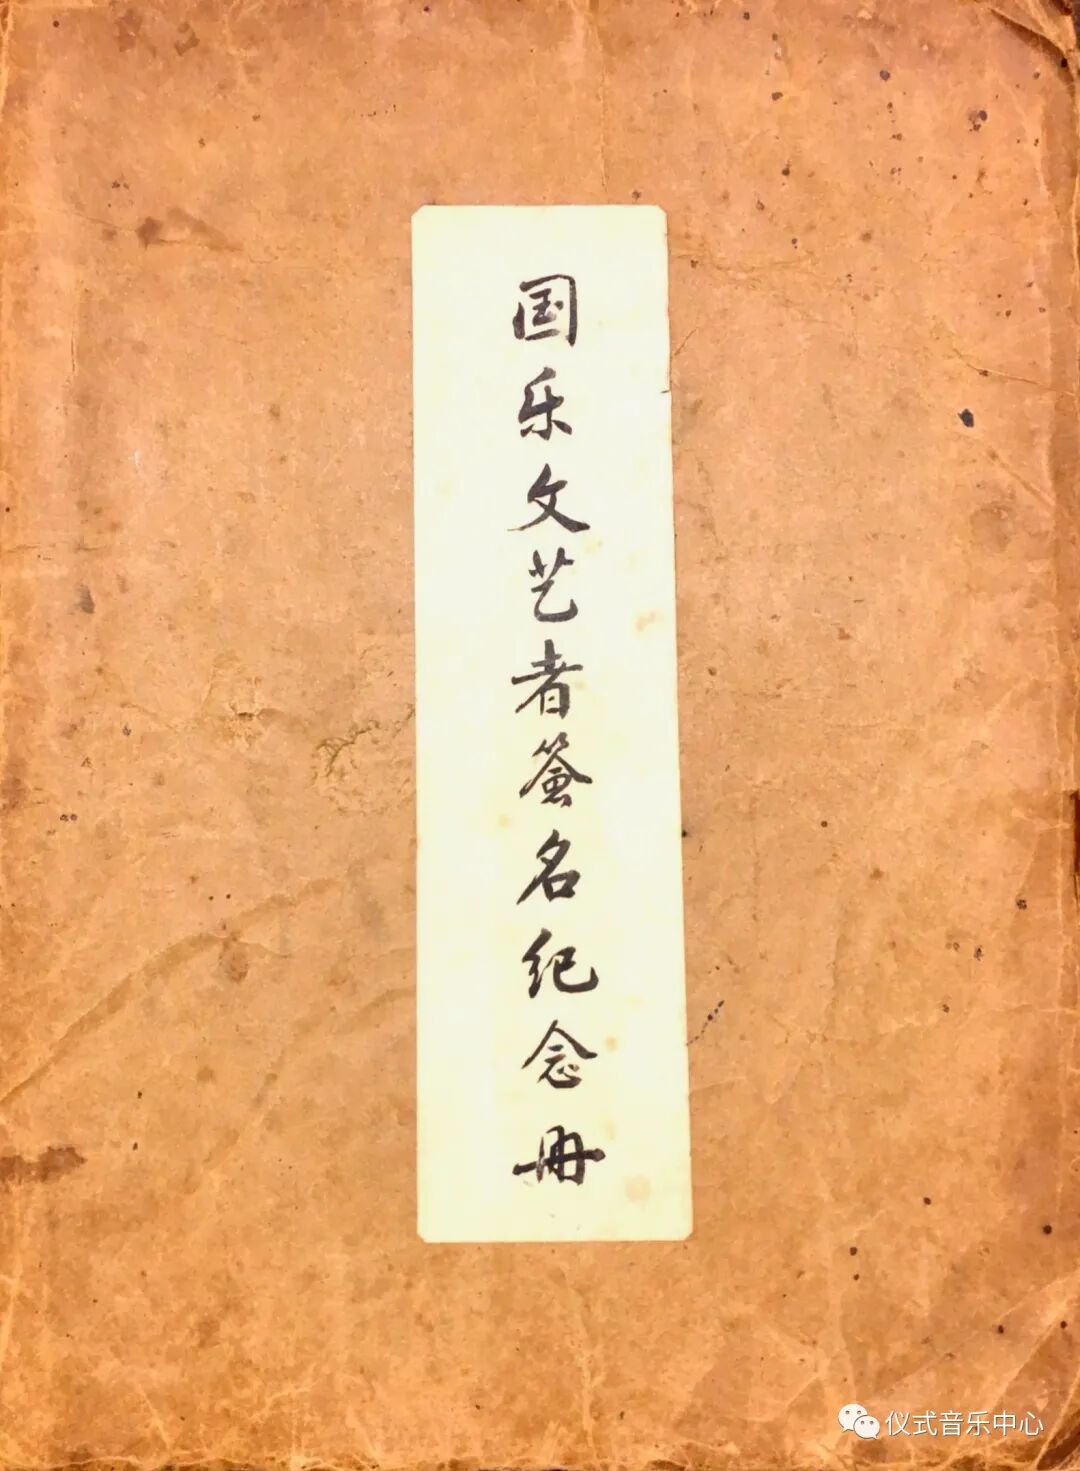 国乐文艺者签名纪念册
仪式音乐中心